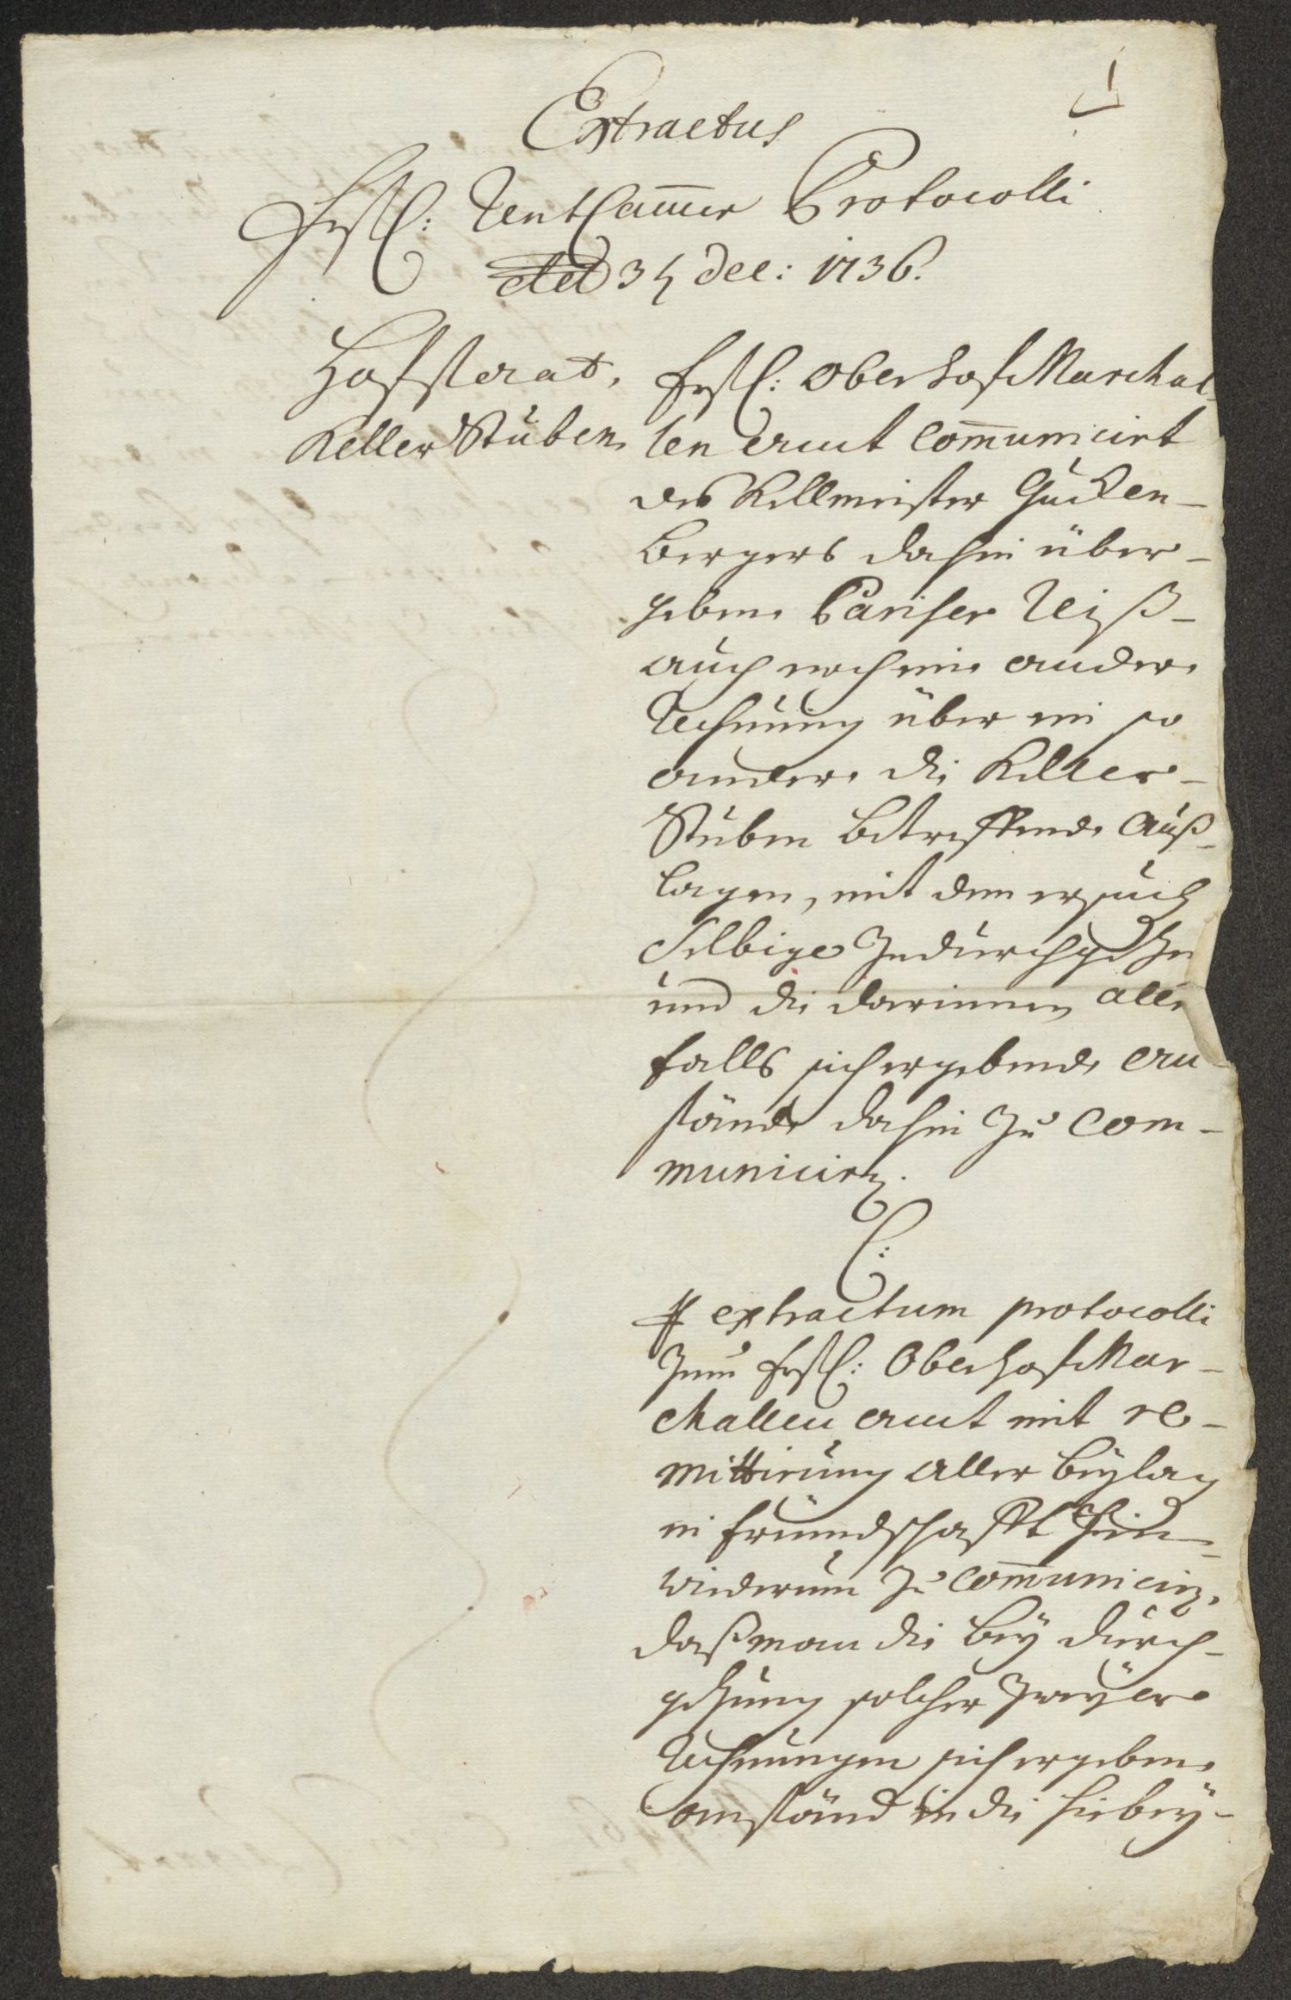 1
Extractus
Frstl: RentCammer Protocolli
dtd 31 dec: 1736.
Hofstaat,
Keller Stuben
frstl: Oberhof Marchal-
len amt communicirt
des Kellmeister Gucken-
bergers dahin über-
gebene Pariser Reyß-
auch noch eine andere
Rechnung über ein so
andere die Keller-
Stuben betreffende Auß-
lagen, mit dem ersuch
selbige zu durchgehen
und die darinnen alle
falls sich ergebende an
stände dahin zu com-
municirn.
C:
p extractum protocolli
zum frstl: Oberhof Mar-
challen amt mit re-
mittirung aller beylag
in freundschafft hin-
widerum zu communicirn,
daß man die bey durch-
gehung solcher zweyer
Rechnungen sich ergebene
anständ in die hiebey-